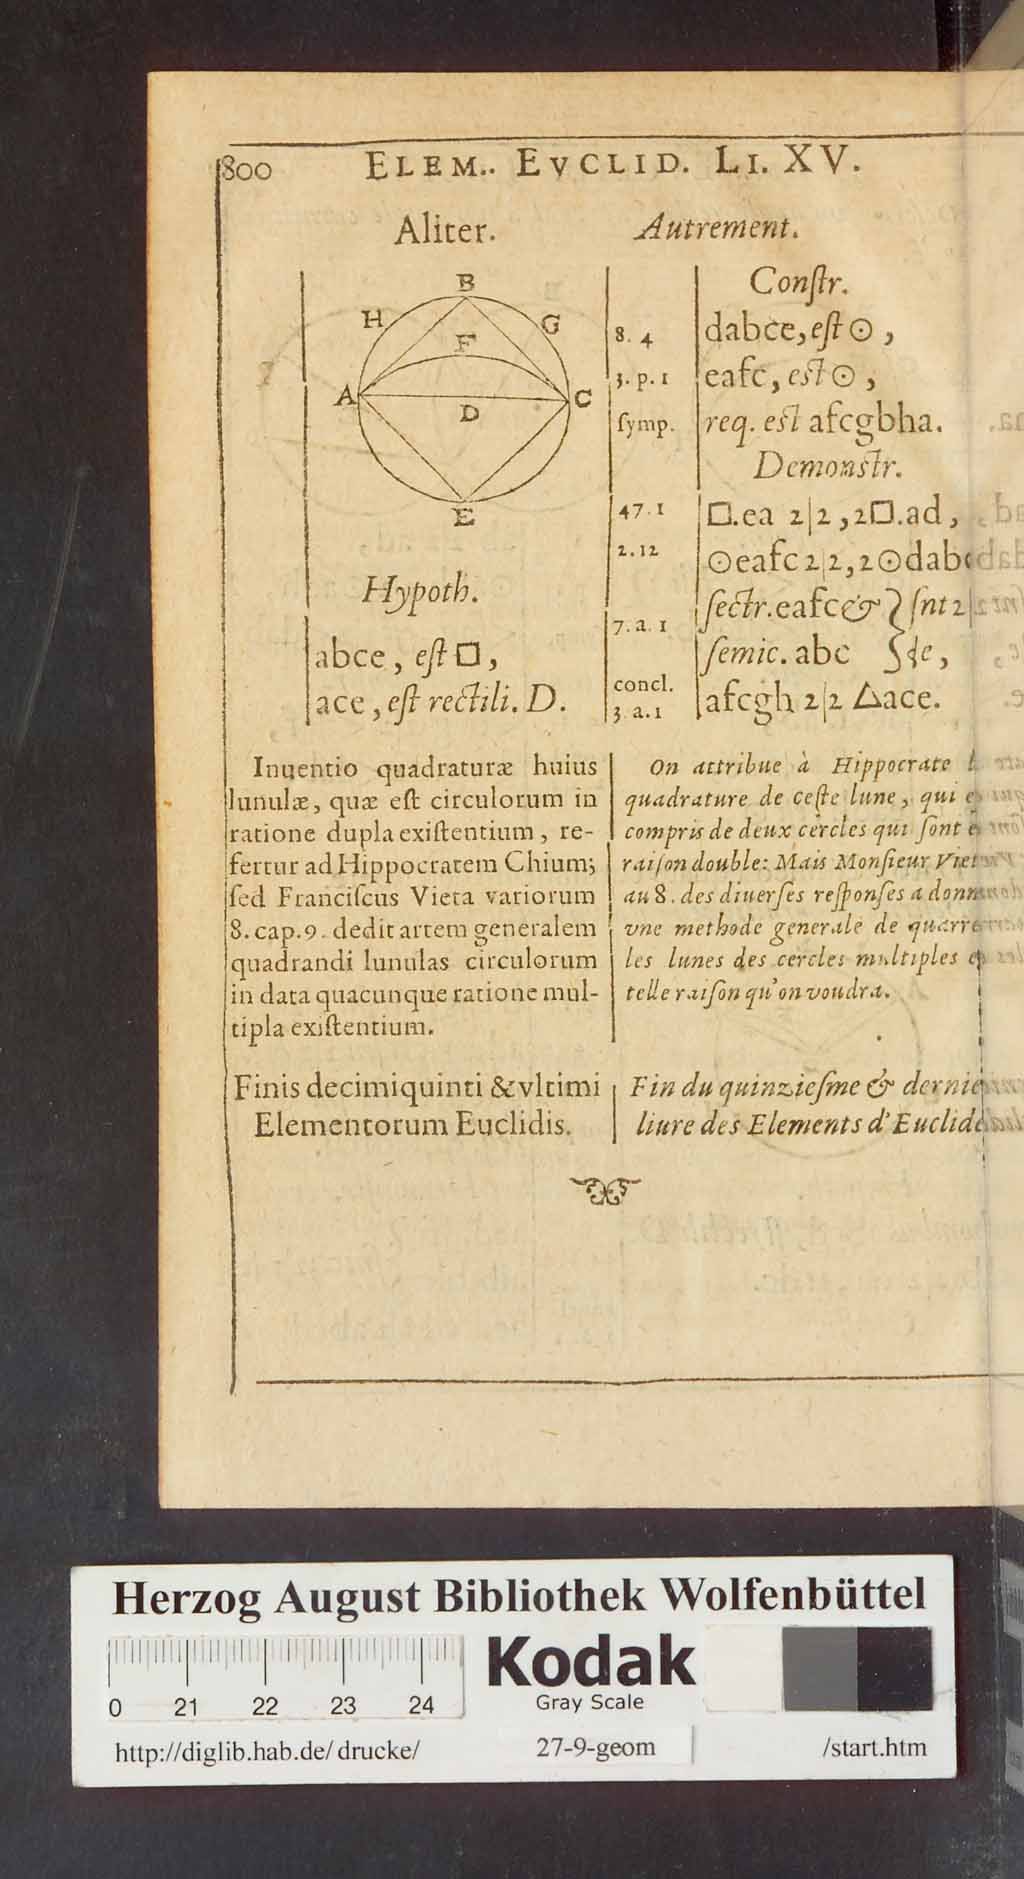 800 ELEM.. EVCLID. LI. XV.
Aliter. Autrement.
B
H
G
F
A
C
D
E
Hypoth.
abce, eſt □,
ace, eſt rectili. D.
Conſtr.
8. 4 dabce, eſt ⊙,
3. p. 1 eafc, est ⊙,
ſymp. req. est afcgbha.
Demonstr.
47. 1 □.ea 2|2, 2□.ad,
2. 12 ⊙eafc 2|2, 2⊙dabc
7. a. 1 ſectr. eafc & } ſnt 2|
ſemic. abc } de,
concl. afcgh 2|2 △ace.
3. a. 1
Inuentio quadraturæ huius
lunulæ, quæ eſt circulorum in
ratione dupla exiſtentium, re-
fertur ad Hippocratem Chium;
ſed Franciſcus Vieta variorum
8. cap. 9. dedit artem generalem
quadrandi lunulas circulorum
in data quacunque ratione mul-
tipla exiſtentium.
On attribue à Hippocrate
quadrature de ceſte lune, qui
compris de deux cercles qui ſont
raiſon double: Mais Monſieur Viet
au 8. des diuerſes reſponſes a donn
vne methode generale de quarre
les lunes des cercles multiples
telle raiſon qu'on voudra.
Finis decimiquinti & vltimi
Elementorum Euclidis.
Fin du quinzieſme & dernie
liure des Elements d'Euclide
Herzog August Bibliothek Wolfenbüttel
Kodak
Gray Scale
0 21 22 23 24
http://diglib.hab.de/drucke/ 27-9-geom /start.htm